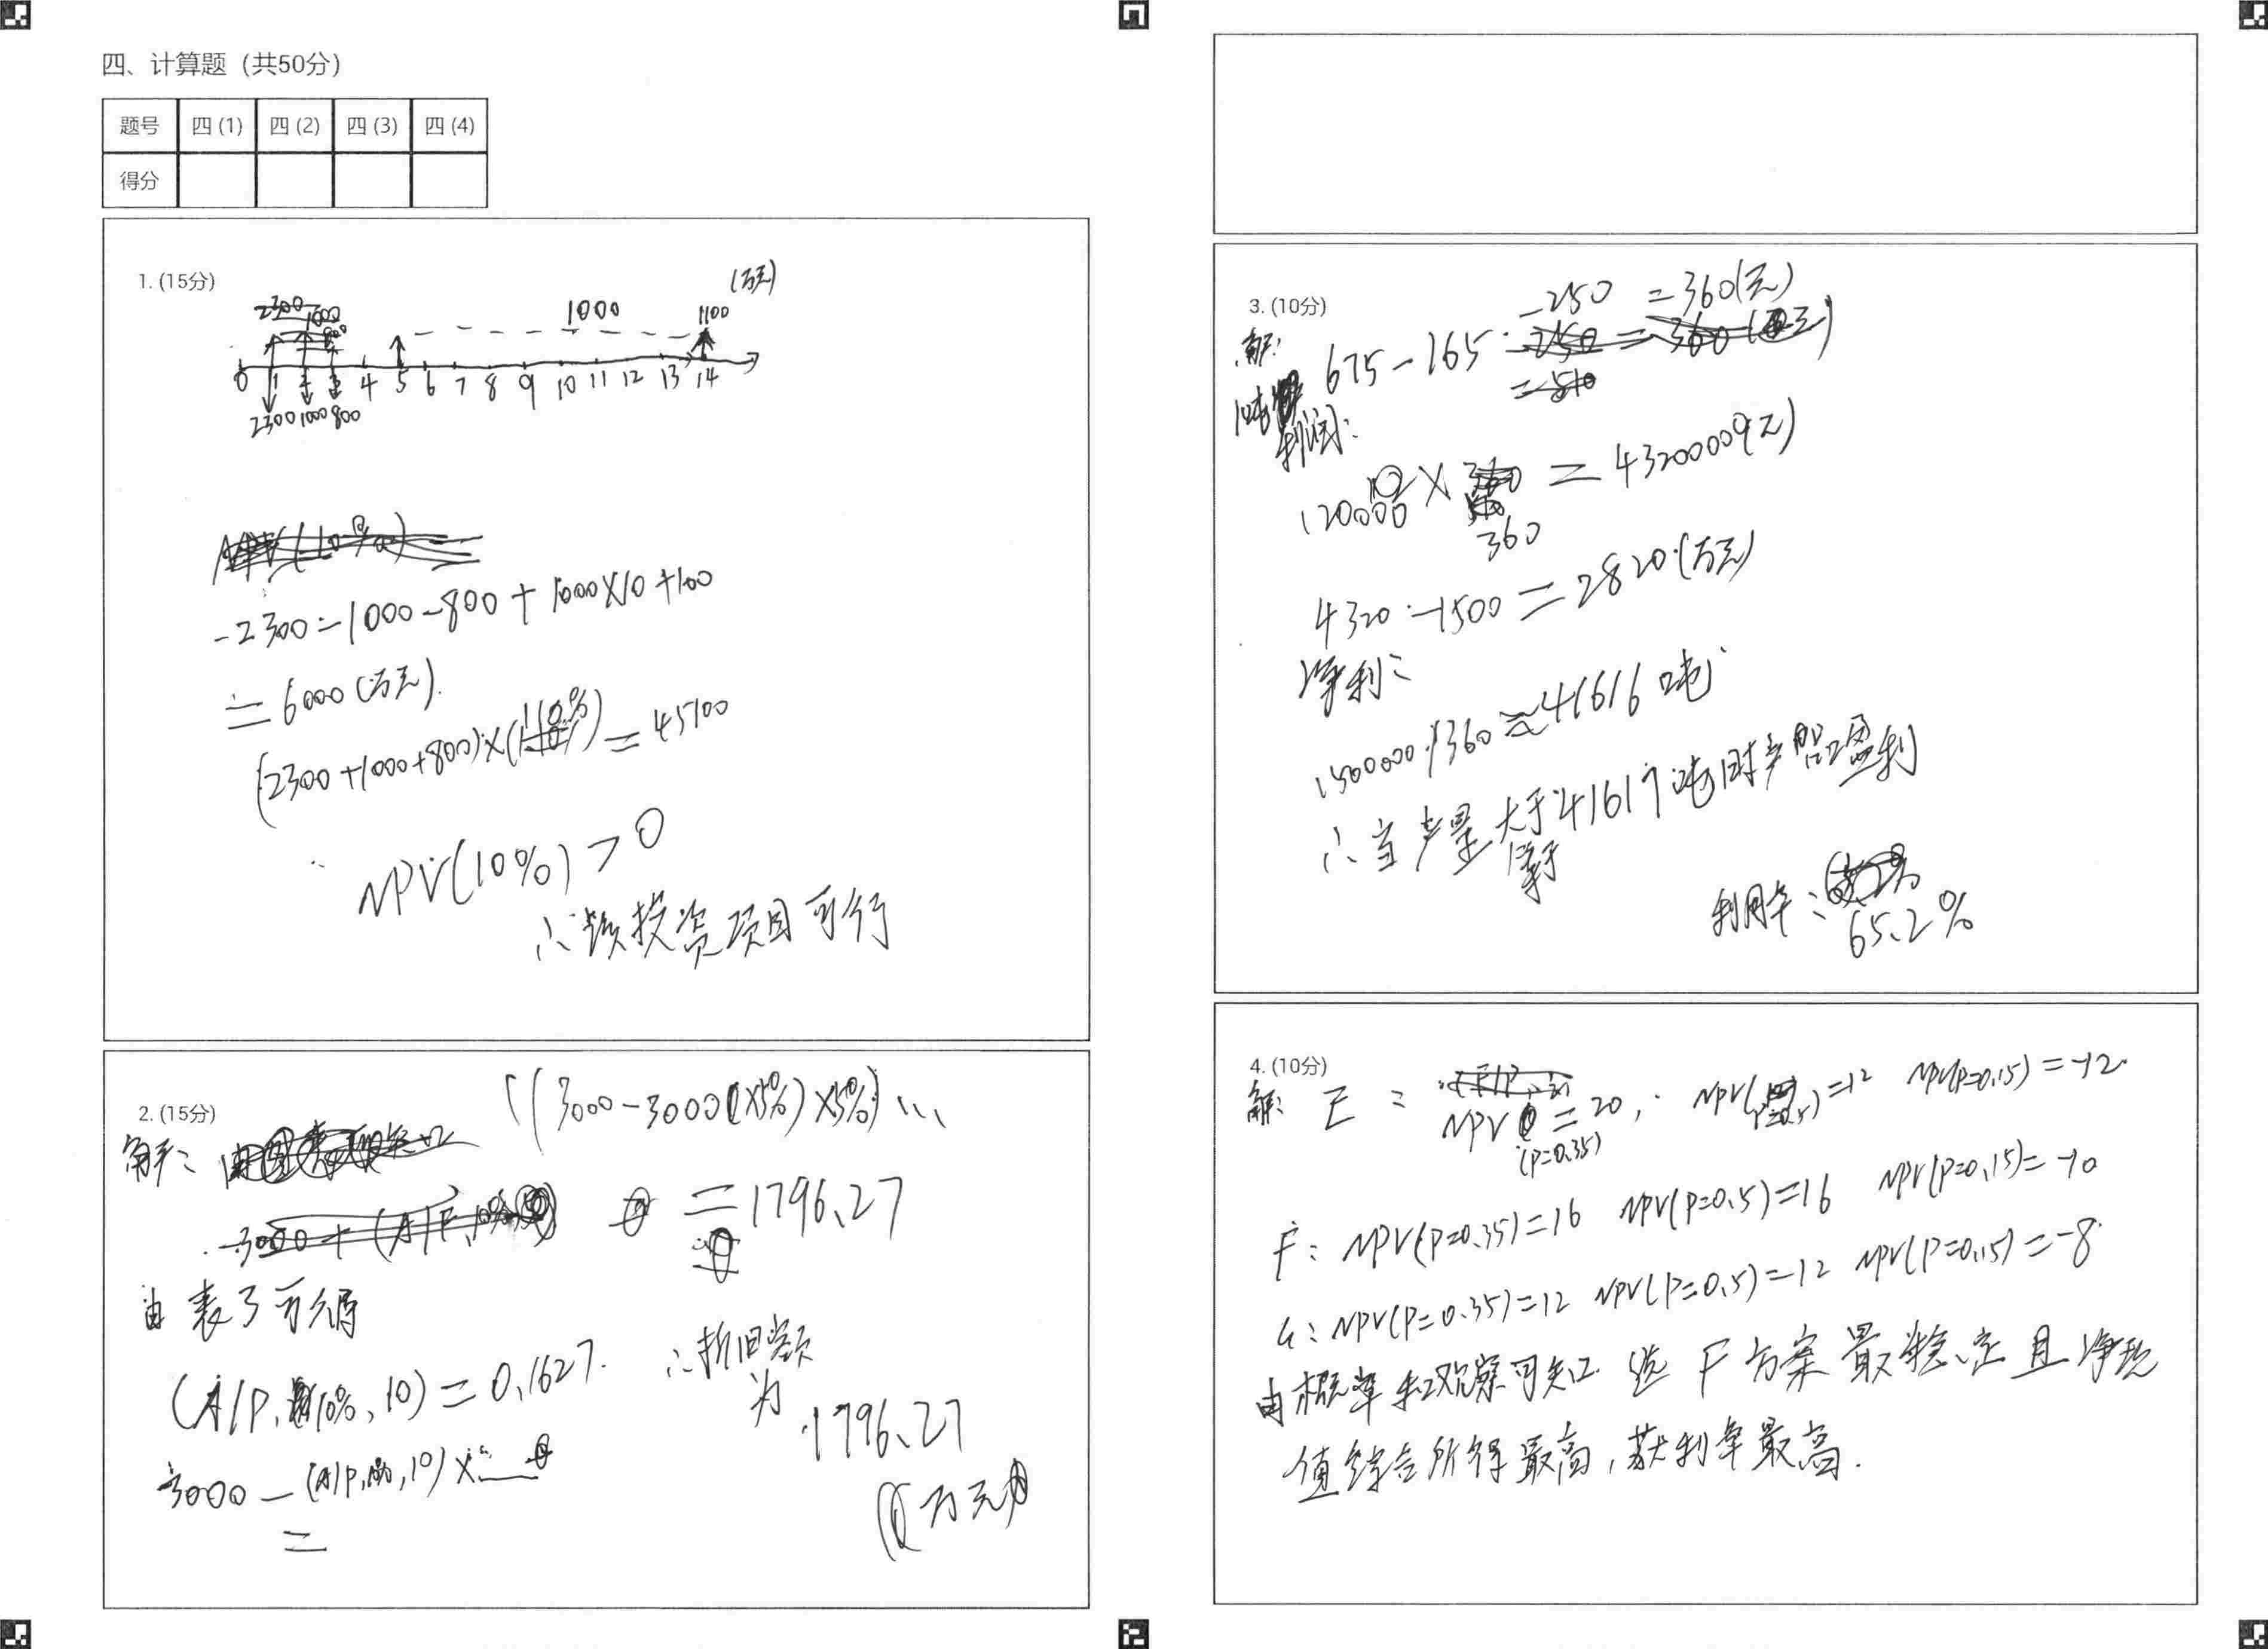 四、计算题（共50分）
题号 四 (1) 四 (2) 四 (3) 四 (4)
得分
1. (15分)
(万元)
1000
1100
0 1 2 3 4 5 6 7 8 9 10 11 12 13 14
2300 1000 800
-2300-1000-800+1000×10+100
=6000(万元).
(2300+1000+800)×(110%)=45100
NPV(10%)>0
∴该投资项目可行
2. (15分)
解:
((3000-3000(×5%)×5%)...
=1796.27
由表3可得
(A/P,10%,10)=0.1627.
3000-(A/P,10%,10)×
=
∴折旧额
为
1796.27
(万元)
3. (10分)
解:
675-165-250=360(元)
1吨
利润:
120000×360=43200000(元)
4320-1500=2820(万元)
净利:
1500000/360≈41616吨
∴当产量大于41617吨时产品盈利
利用率:
65.2%
4. (10分)
解: E: NPV(P=0.35)=20, NPV(P=0.5)=12 NPV(P=0.15)=-12
F: NPV(P=0.35)=16 NPV(P=0.5)=16 NPV(P=0.15)=-10
G: NPV(P=0.35)=12 NPV(P=0.5)=12 NPV(P=0.15)=-8
由概率和观察可知 选F方案最稳定且净现
值综合所得最高,获利率最高.